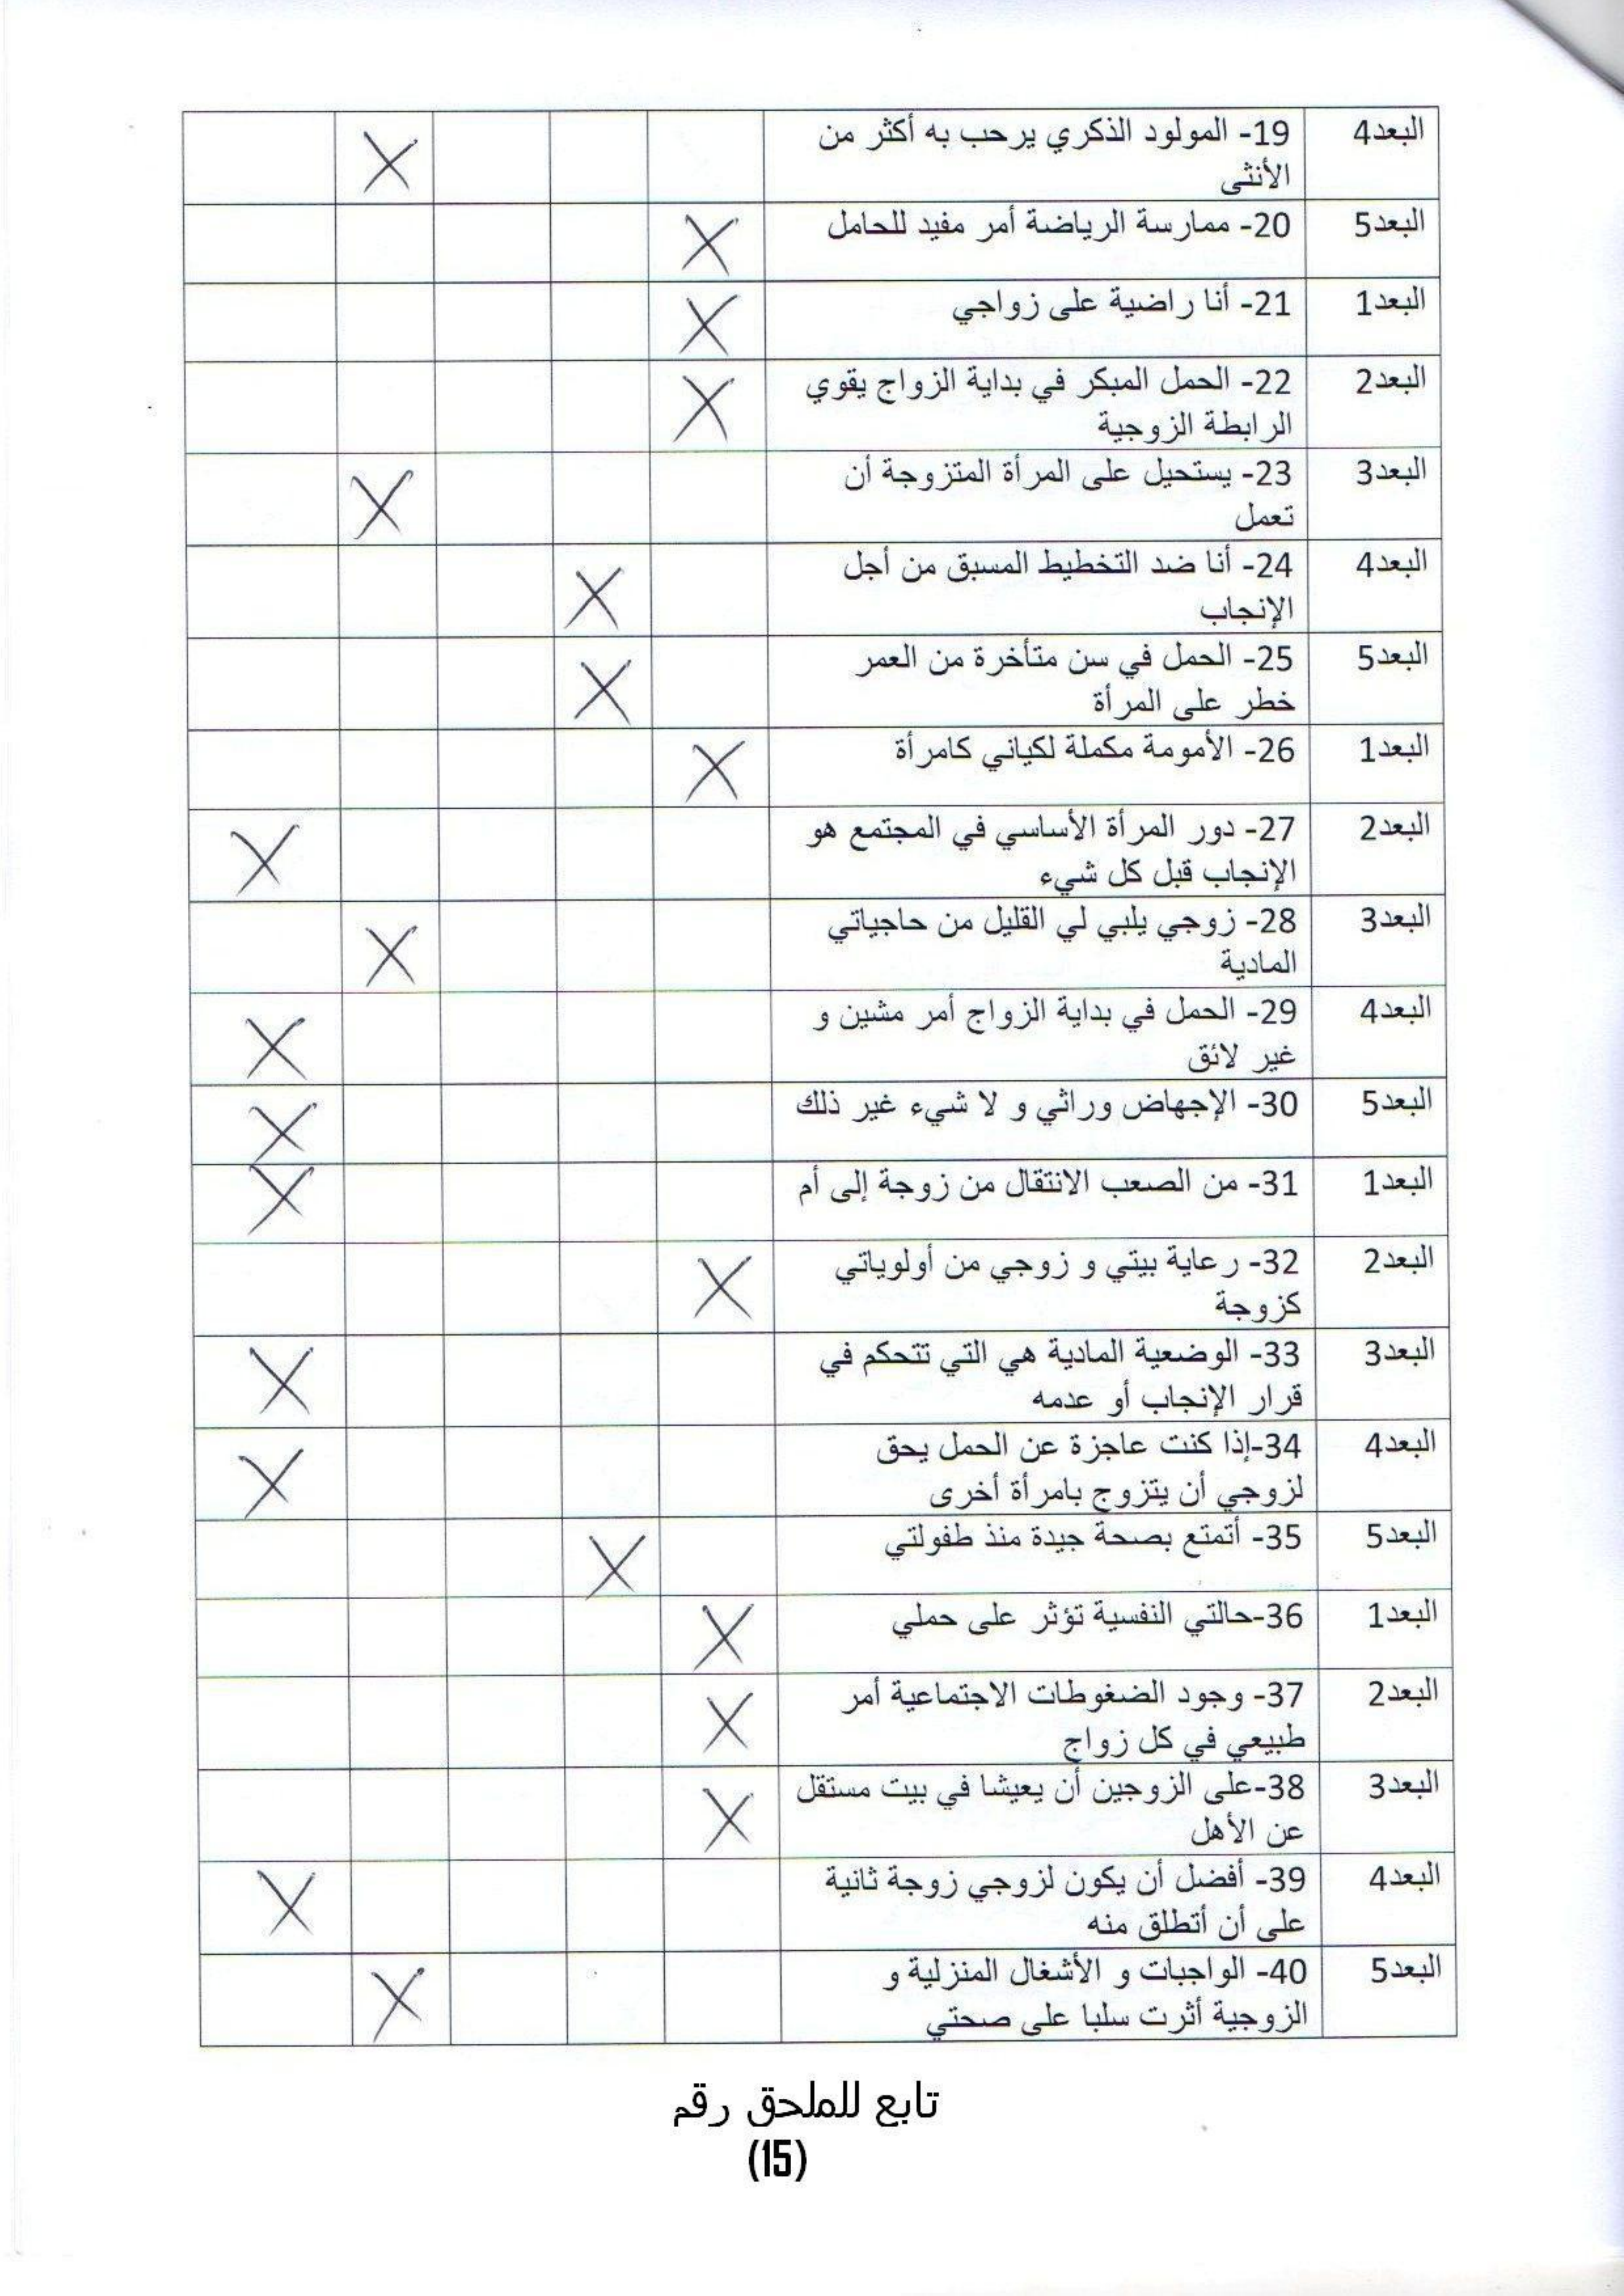 البعد4 19- المولود الذكري يرحب به أكثر من
الأنثى
البعد5 20- ممارسة الرياضة أمر مفيد للحامل
البعد1 21- أنا راضية على زواجي
البعد2 22- الحمل المبكر في بداية الزواج يقوي
الرابطة الزوجية
البعد3 23- يستحيل على المرأة المتزوجة أن
تعمل
البعد4 24- أنا ضد التخطيط المسبق من أجل
الإنجاب
البعد5 25- الحمل في سن متأخرة من العمر
خطر على المرأة
البعد1 26- الأمومة مكملة لكياني كامرأة
البعد2 27- دور المرأة الأساسي في المجتمع هو
الإنجاب قبل كل شيء
البعد3 28- زوجي يلبي لي القليل من حاجياتي
المادية
البعد4 29- الحمل في بداية الزواج أمر مشين و
غير لائق
البعد5 30- الإجهاض وراثي و لا شيء غير ذلك
البعد1 31- من الصعب الانتقال من زوجة إلى أم
البعد2 32- رعاية بيتي و زوجي من أولوياتي
كزوجة
البعد3 33- الوضعية المادية هي التي تتحكم في
قرار الإنجاب أو عدمه
البعد4 34-إذا كنت عاجزة عن الحمل يحق
لزوجي أن يتزوج بامرأة أخرى
البعد5 35- أتمتع بصحة جيدة منذ طفولتي
البعد1 36-حالتي النفسية تؤثر على حملي
البعد2 37- وجود الضغوطات الاجتماعية أمر
طبيعي في كل زواج
البعد3 38-على الزوجين أن يعيشا في بيت مستقل
عن الأهل
البعد4 39- أفضل أن يكون لزوجي زوجة ثانية
على أن أتطلق منه
البعد5 40- الواجبات و الأشغال المنزلية و
الزوجية أثرت سلبا على صحتي
تابع للملحق رقم
(15)